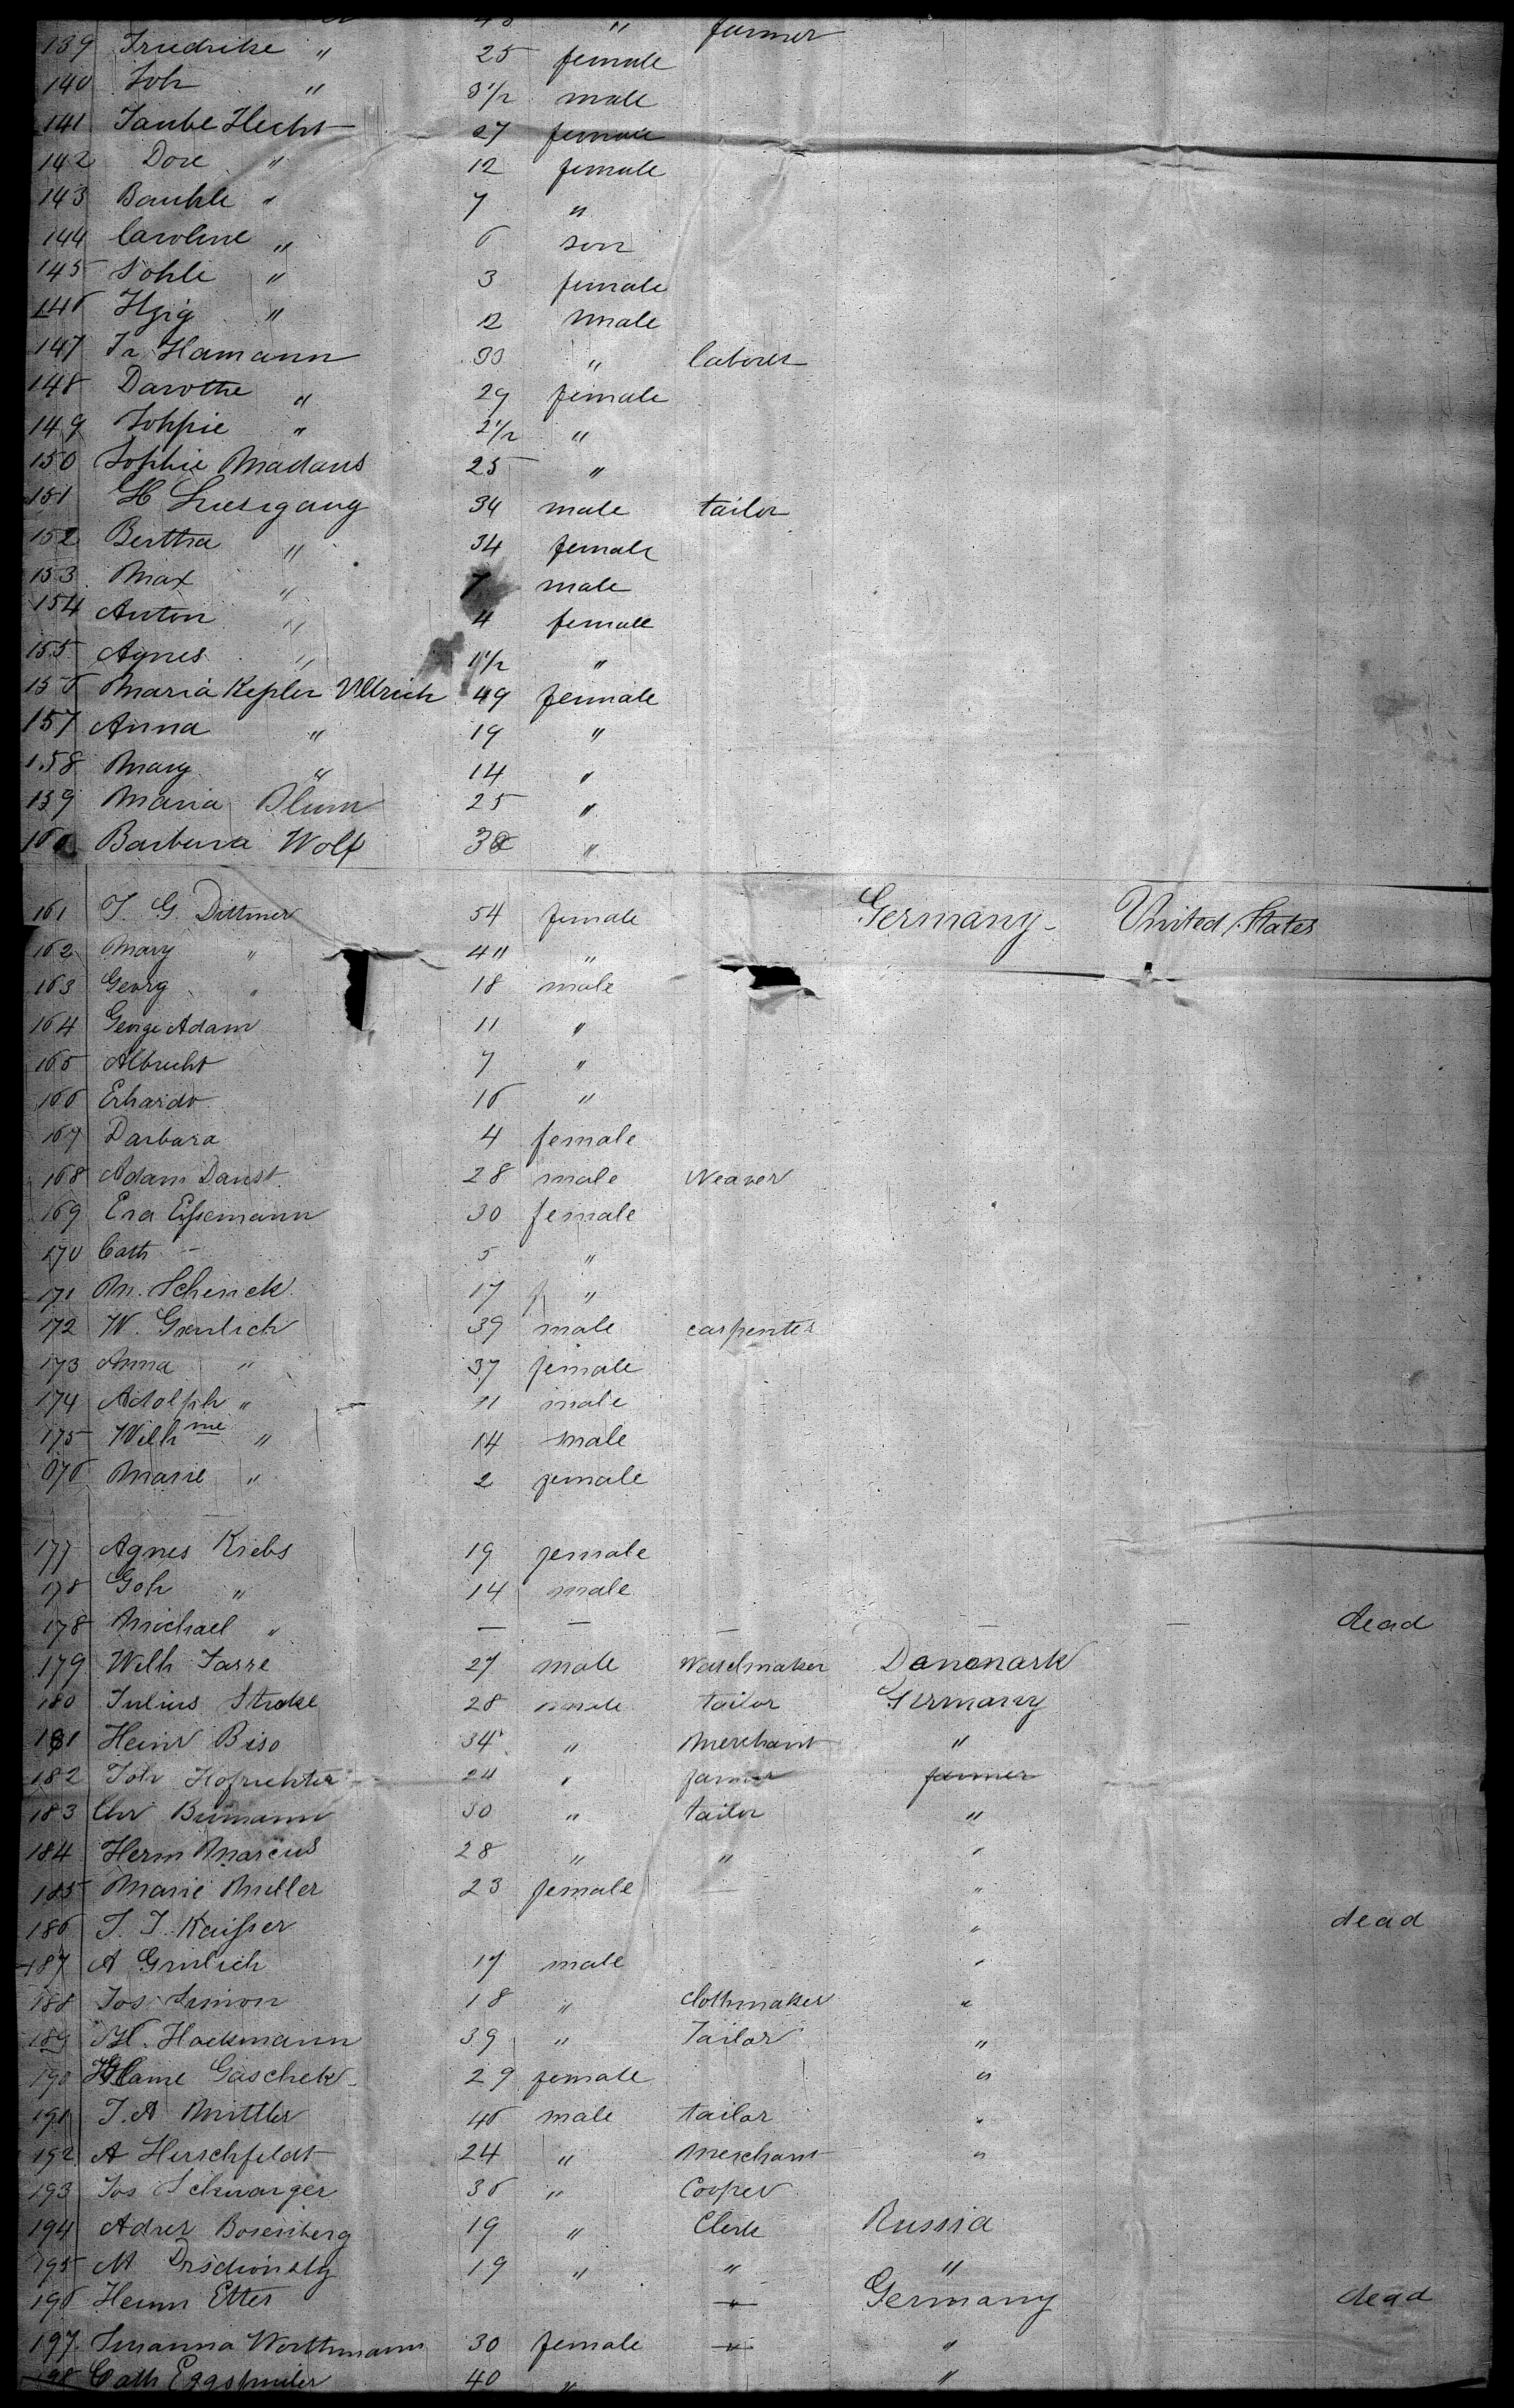 farmer
139 Friedrike " 25 female
140 Joh " 3 1/2 male
141 Taube Hecht 27 female
142 Dore " 12 female
143 Bauhle " 7 "
144 Caroline " 6 son
145 Sohle " 3 female
146 Hzig " 12 male
147 Fr. Hamann 33 " laborer
148 Darothe " 29 female
149 Sophie " 2 1/2 "
150 Sophie Madaus 25 "
151 H Liesegang 34 male tailor
152 Bertha " 34 female
153 Max " 7 male
154 Anton " 4 female
155 Agnes " 1 1/2 "
156 Maria Kepler Ullrich 49 female
157 Anna " 19 "
158 Mary " 14 "
159 Maria Blum 25 "
160 Barbara Wolf "
161 J. G. Dittmer 54 female Germany United States
162 Mary " "
163 Georg " 18 male
164 George Adam 11 "
165 Albrecht 7 "
166 Erhardt 16 "
167 Barbara 4 female
168 Adam Daust 28 male Weaver
169 Eva Essemann 30 female
170 Cath - 5 "
171 M. Schenck 17 "
172 W. Greulich 39 male carpenter
173 Anna " 37 female
174 Adolph " 11 male
175 Wilhme " 14 male
176 Marie " 2 female
177 Agnes Krebs 19 female
178 Goh " 14 male
178 Michael " — — — — — dead
179 Wilh Jarre 27 male Denemark
180 Julius Strake 28 male tailor Germany
181 Heinr Biso 34 " Merchant "
182 Joh Hofrichter 24 " farmer farmer
183 Chr Bumann 30 " tailor "
184 Herm Marcus 28 " " "
185 Marie Muller 23 female — "
186 J. J. Kaisser " dead
187 A Greulich 17 male "
188 Jos. Simon 18 " Clothmaker "
189 H. Hackmann 39 " Tailor "
190 Gaschek 29 female "
191 J. A Mittler 46 male tailor "
192 A Herschfeldt 24 " Merchant "
193 Jos Schwarzer 36 " Cooper
194 Bosenberg 19 " Clerk Russia
195 M 19 " " "
196 Herm Etter " Germany dead
197 Susanna Worthmann 30 female " "
198 Cath 40 " "